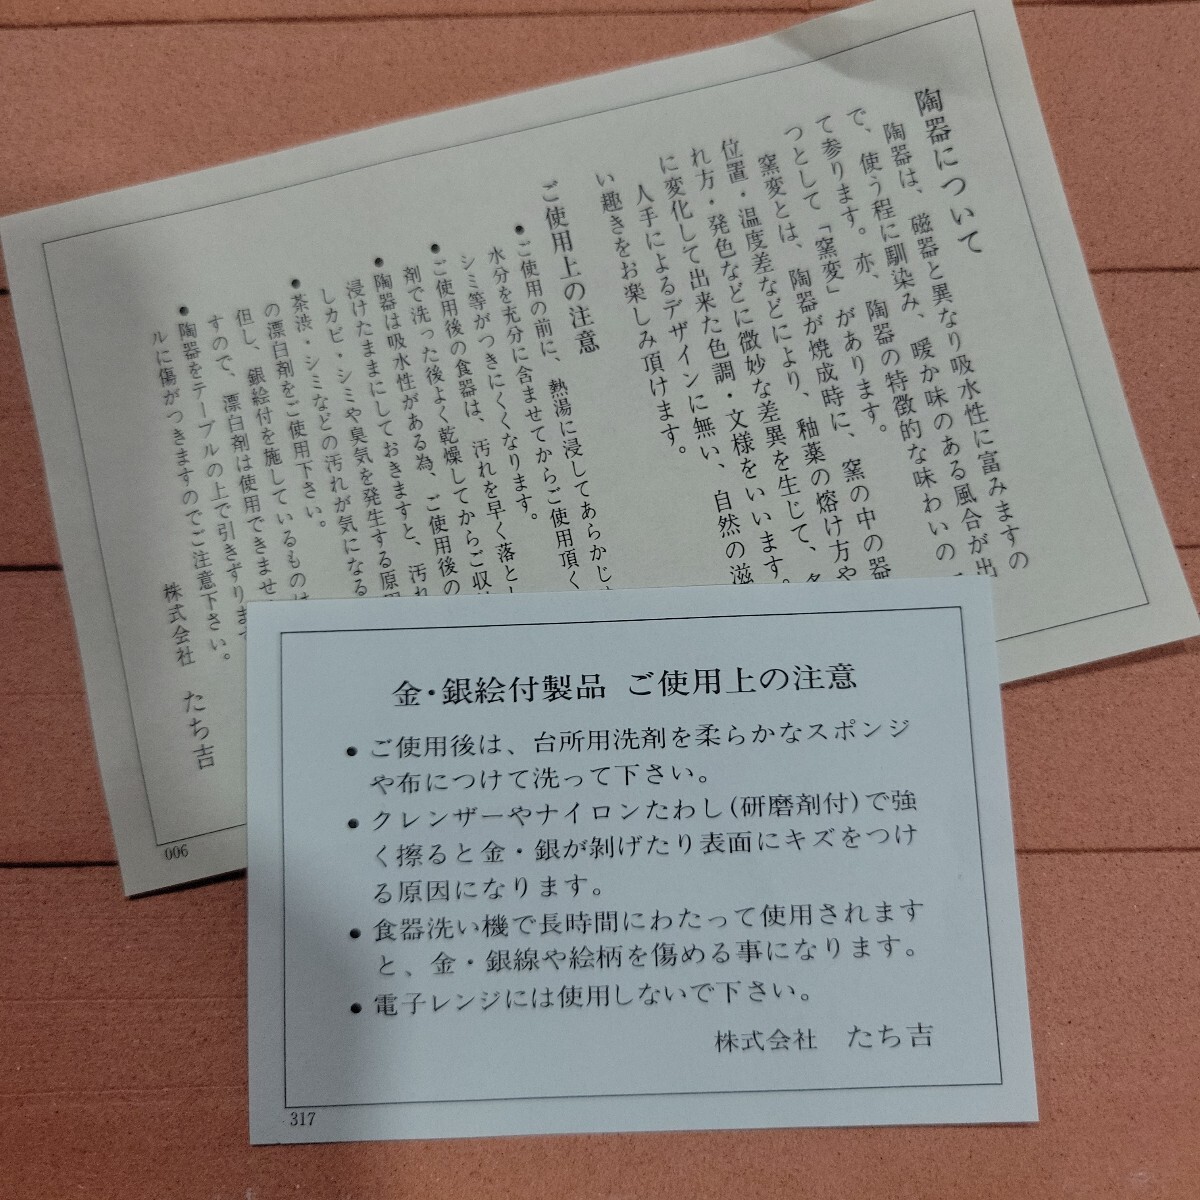 陶器について
陶器は、磁器と異なり吸水性に富みますの
で、使う程に馴染み、暖か味のある風合が出
て参ります。亦、陶器の特徴的な味わいの一
つとして「窯変」があります。
窯変とは、陶器が焼成時に、窯の中の器
位置・温度差などにより、釉薬の熔け方や
れ方・発色などに微妙な差異を生じて、
に変化して出来た色調・文様をいいます。
人手によるデザインに無い、自然の滋
い趣きをお楽しみ頂けます。
ご使用上の注意
●ご使用の前に、熱湯に浸してあらかじめ
水分を充分に含ませてからご使用頂く
シミ等がつきにくくなります。
●ご使用後の食器は、汚れを早く落とし
剤で洗った後よく乾燥してからご収
●陶器は吸水性がある為、ご使用後の
浸けたままにしておきますと、汚れ
しカビ・シミや臭気を発生する原因
●茶渋・シミなどの汚れが気になる
の漂白剤をご使用下さい。
但し、銀絵付を施しているものは
すので、漂白剤は使用できませ
●陶器をテーブルの上で引きずります
ルに傷がつきますのでご注意下さい。
株式会社 たち吉
006
金・銀絵付製品 ご使用上の注意
●ご使用後は、台所用洗剤を柔らかなスポンジ
や布につけて洗って下さい。
●クレンザーやナイロンたわし(研磨剤付)で強
く擦ると金・銀が剝げたり表面にキズをつけ
る原因になります。
●食器洗い機で長時間にわたって使用されます
と、金・銀線や絵柄を傷める事になります。
●電子レンジには使用しないで下さい。
株式会社 たち吉
317